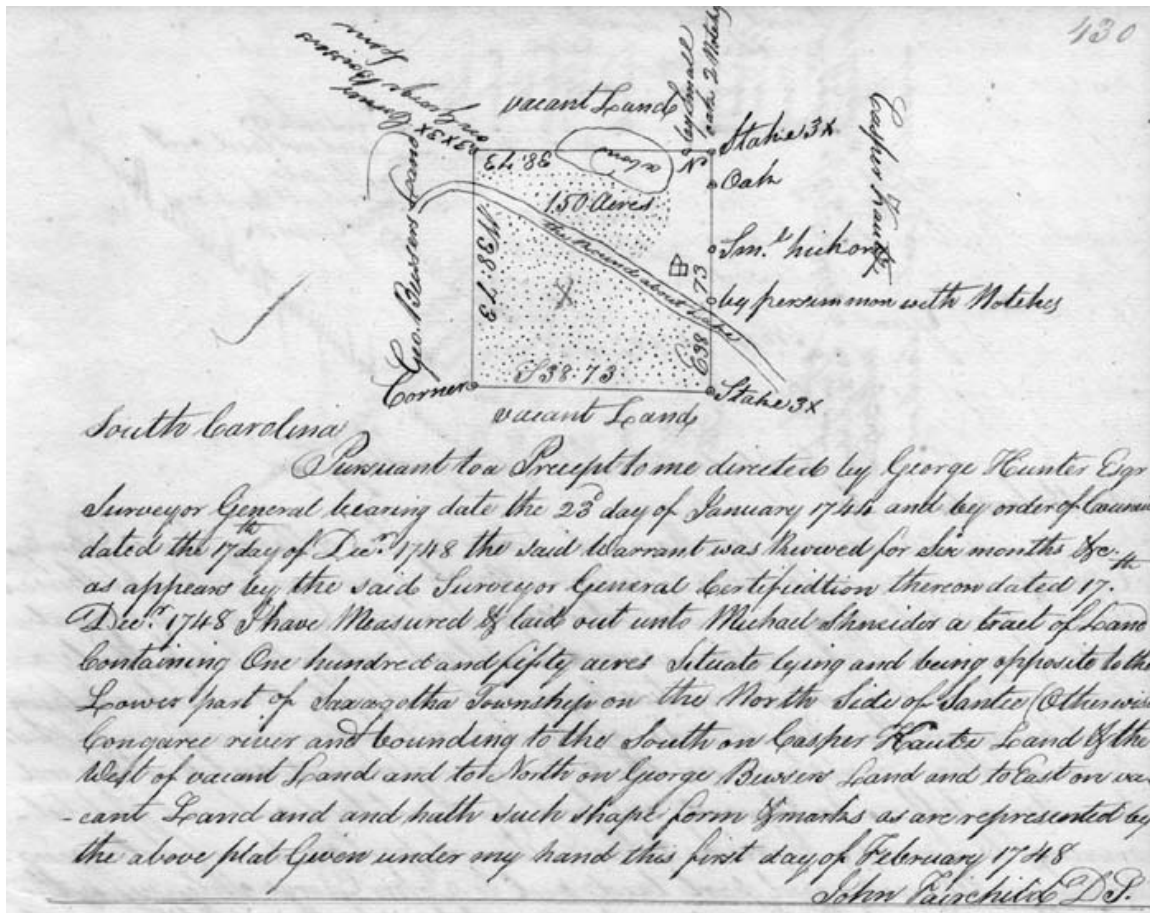 430
vacant Land
by Small
oak 2 Notch
Stake 3x
Oak
Casper Haute
3x3x
38:73
pond
150 Acres
Geo. Bewsers Land
W38:73
the Round about Sape
Smll hickory
73
by persimmon with Notches
E38
S38:73
Corner
Stake 3x
vacant Land
South Carolina
Pursuant to a Precept to me directed by George Hunter Esqr
Surveyor General bearing date the 23d day of January 1744 and by order of
dated the 17th day of Decr. 1748 the said Warrant was Renewed for Six months &c.
as appears by the said Surveyor General thereon dated 17.th
Decr. 1748 I have Measured & laid out unto Michael Shneider a tract of Land
Containing One hundred and fifty acres Situate lying and being opposite to the
Lower part of Saxagotha Township on the North Side of Santee (Otherwise
Congaree river and bounding to the South on Casper Haute Land & the
West of vacant Land and to North on George Bewsers Land and to East on va-
-cant Land and and hath such shape form & marks as are represented by
the above plat Given under my hand this first day of February 1748
John Fairchild D S.